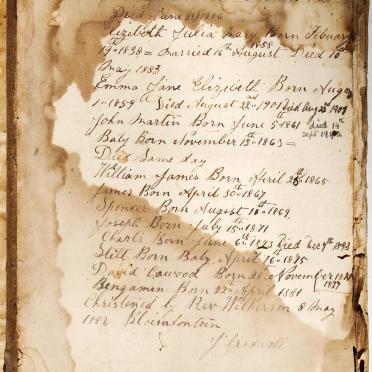 Died June 21 1886
Elizibeth Julia Mary Born Febuary
19th 1838 = Married 16th August 1858 Died 10th
May 1883
Emma Jane Elizibeth Born Augus
1st 1859 Died August 22nd 1901 Died Aug 22 1901
John Martin Born June 5th 1861 died 14th
Baby Born November 13th 1863 =
Died Same day
William James Born April 28th 1865
James Born April 30th 1867
Spencer Born August 10th 1869
Joseph Born July 15th 1871
Charls Born June 6th 1873 Died Dec 4th 1893
Still Born Baby April 16th 1875
David Cawood Born 28 November 1877
Bengamen Born 22nd April 1881
Christened by Rev Wilkerson 8 May
1882 Bloimfontein
J Gradwell